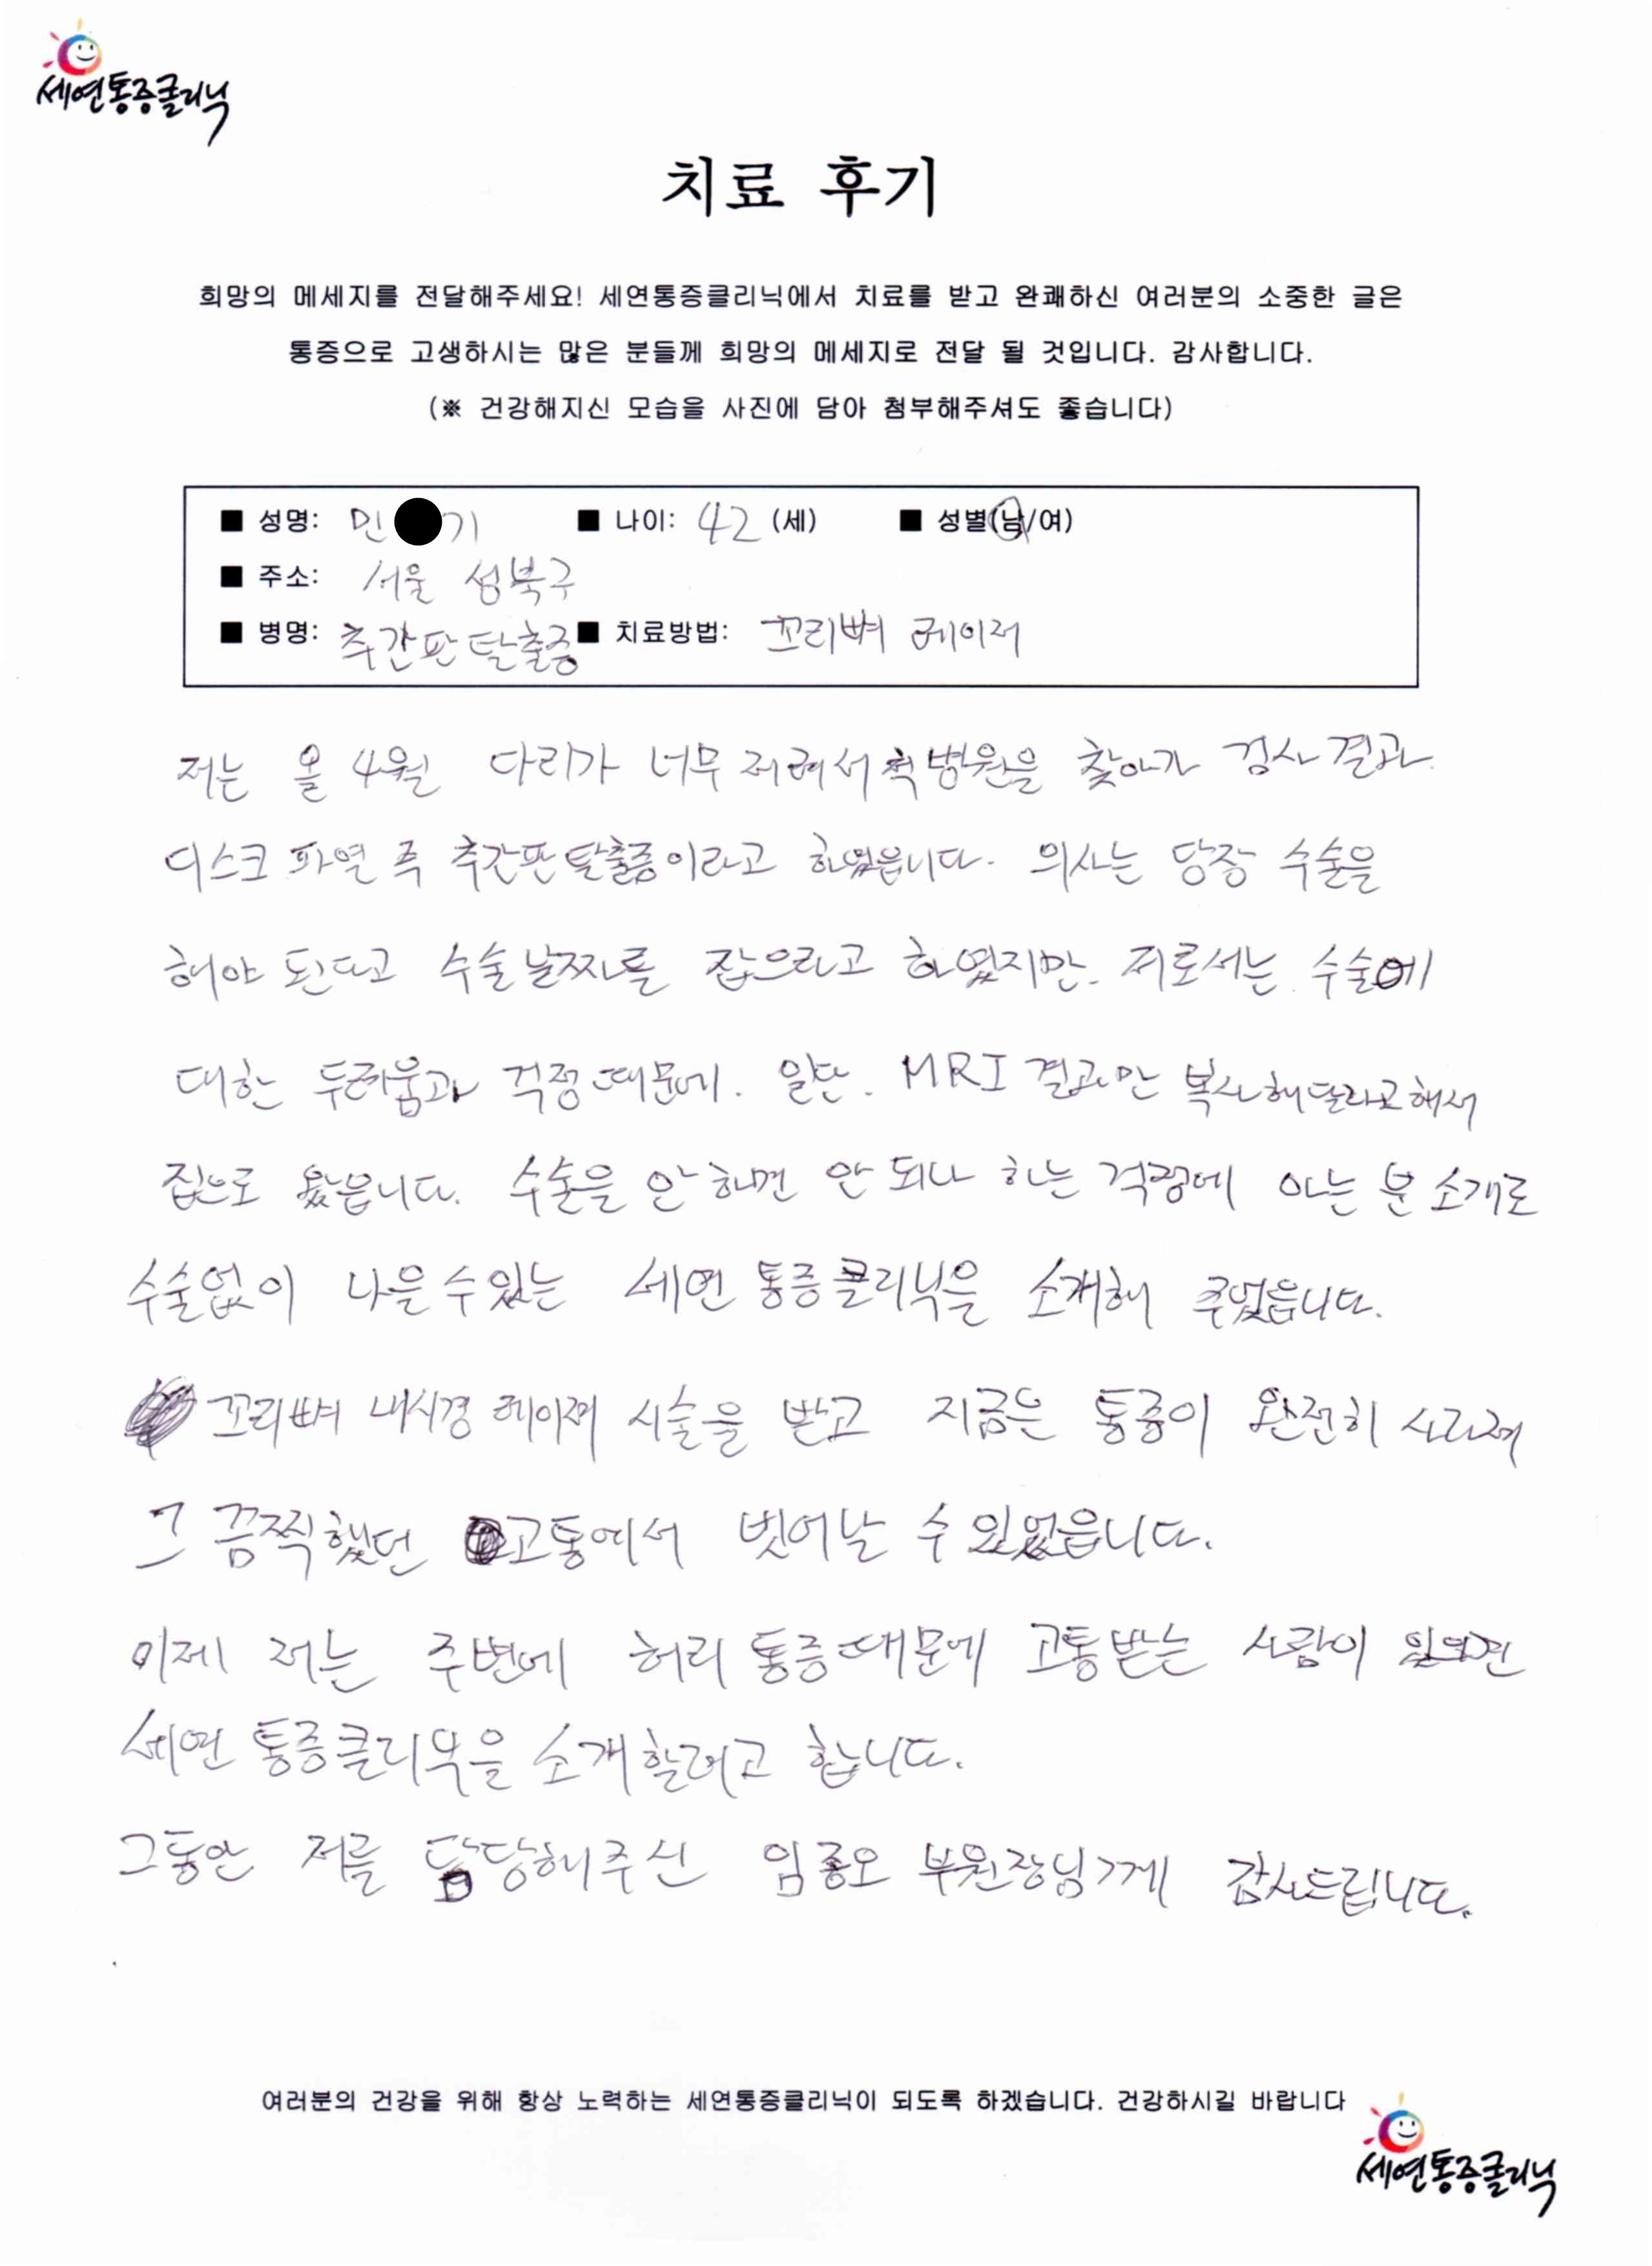 세연통증클리닉
치료 후기
희망의 메세지를 전달해주세요! 세연통증클리닉에서 치료를 받고 완쾌하신 여러분의 소중한 글은
통증으로 고생하시는 많은 분들께 희망의 메세지로 전달 될 것입니다. 감사합니다.
(※ 건강해지신 모습을 사진에 담아 첨부해주셔도 좋습니다)
■ 성명: 민 기 ■ 나이: 42 (세) ■ 성별(남/여)
■ 주소: 서울 성북구
■ 병명: 추간판 탈출증 ■ 치료방법: 꼬리뼈 레이저
저는 올 4월 다리가 너무 저려서 척병원을 찾아가 검사결과
디스크 파열 즉 추간판탈출증이라고 하였읍니다. 의사는 당장 수술을
해야 된다고 수술날짜를 잡으라고 하였지만. 저로서는 수술에
대한 두려움과 걱정때문에. 일단. MRI 결과만 복사해달라고해서
집으로 왔읍니다. 수술을 안하면 안 되나 하는 걱정에 아는 분 소개로
수술없이 나을수있는 세연 통증클리닉을 소개해 주었읍니다.
꼬리뼈 내시경 레이저 시술을 받고 지금은 통증이 완전히 사라져
그 끔찍했던 고통에서 벗어날 수 있었읍니다.
이제 저는 주변에 허리 통증때문에 고통받는 사람이 있으면
세연 통증클리닉을 소개할려고 합니다.
그동안 저를 담당해주신 임종오 부원장님께 감사드립니다.
여러분의 건강을 위해 항상 노력하는 세연통증클리닉이 되도록 하겠습니다. 건강하시길 바랍니다
세연통증클리닉